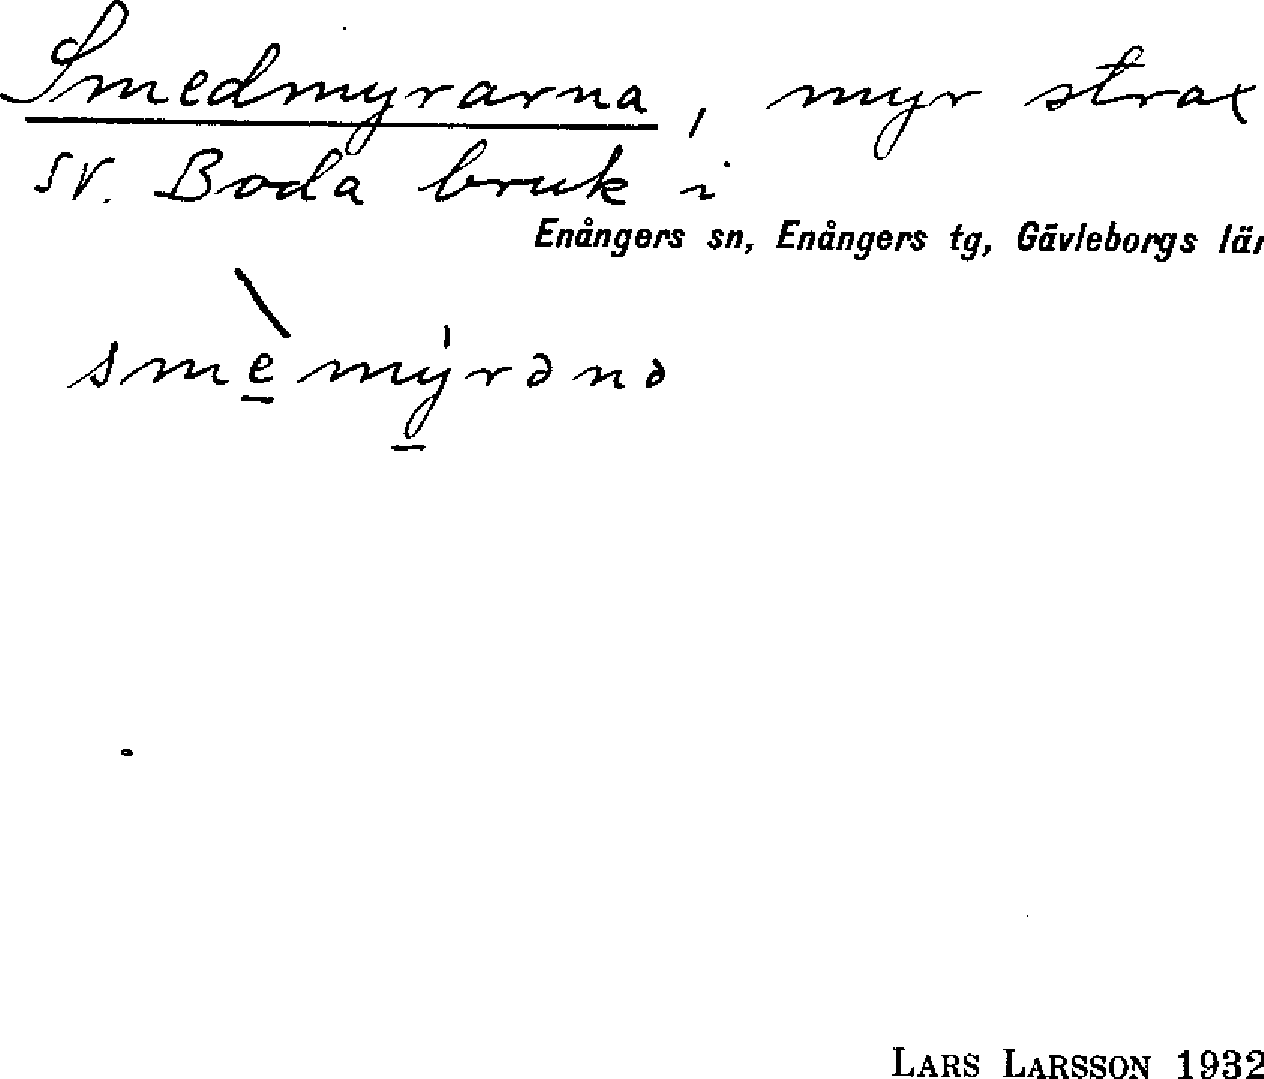 Smedmyrarna, myr strax
SV. Boda bruk i
Enångers sn, Enångers tg, Gävleborgs län
smèmýrənə
LARS LARSSON 1932